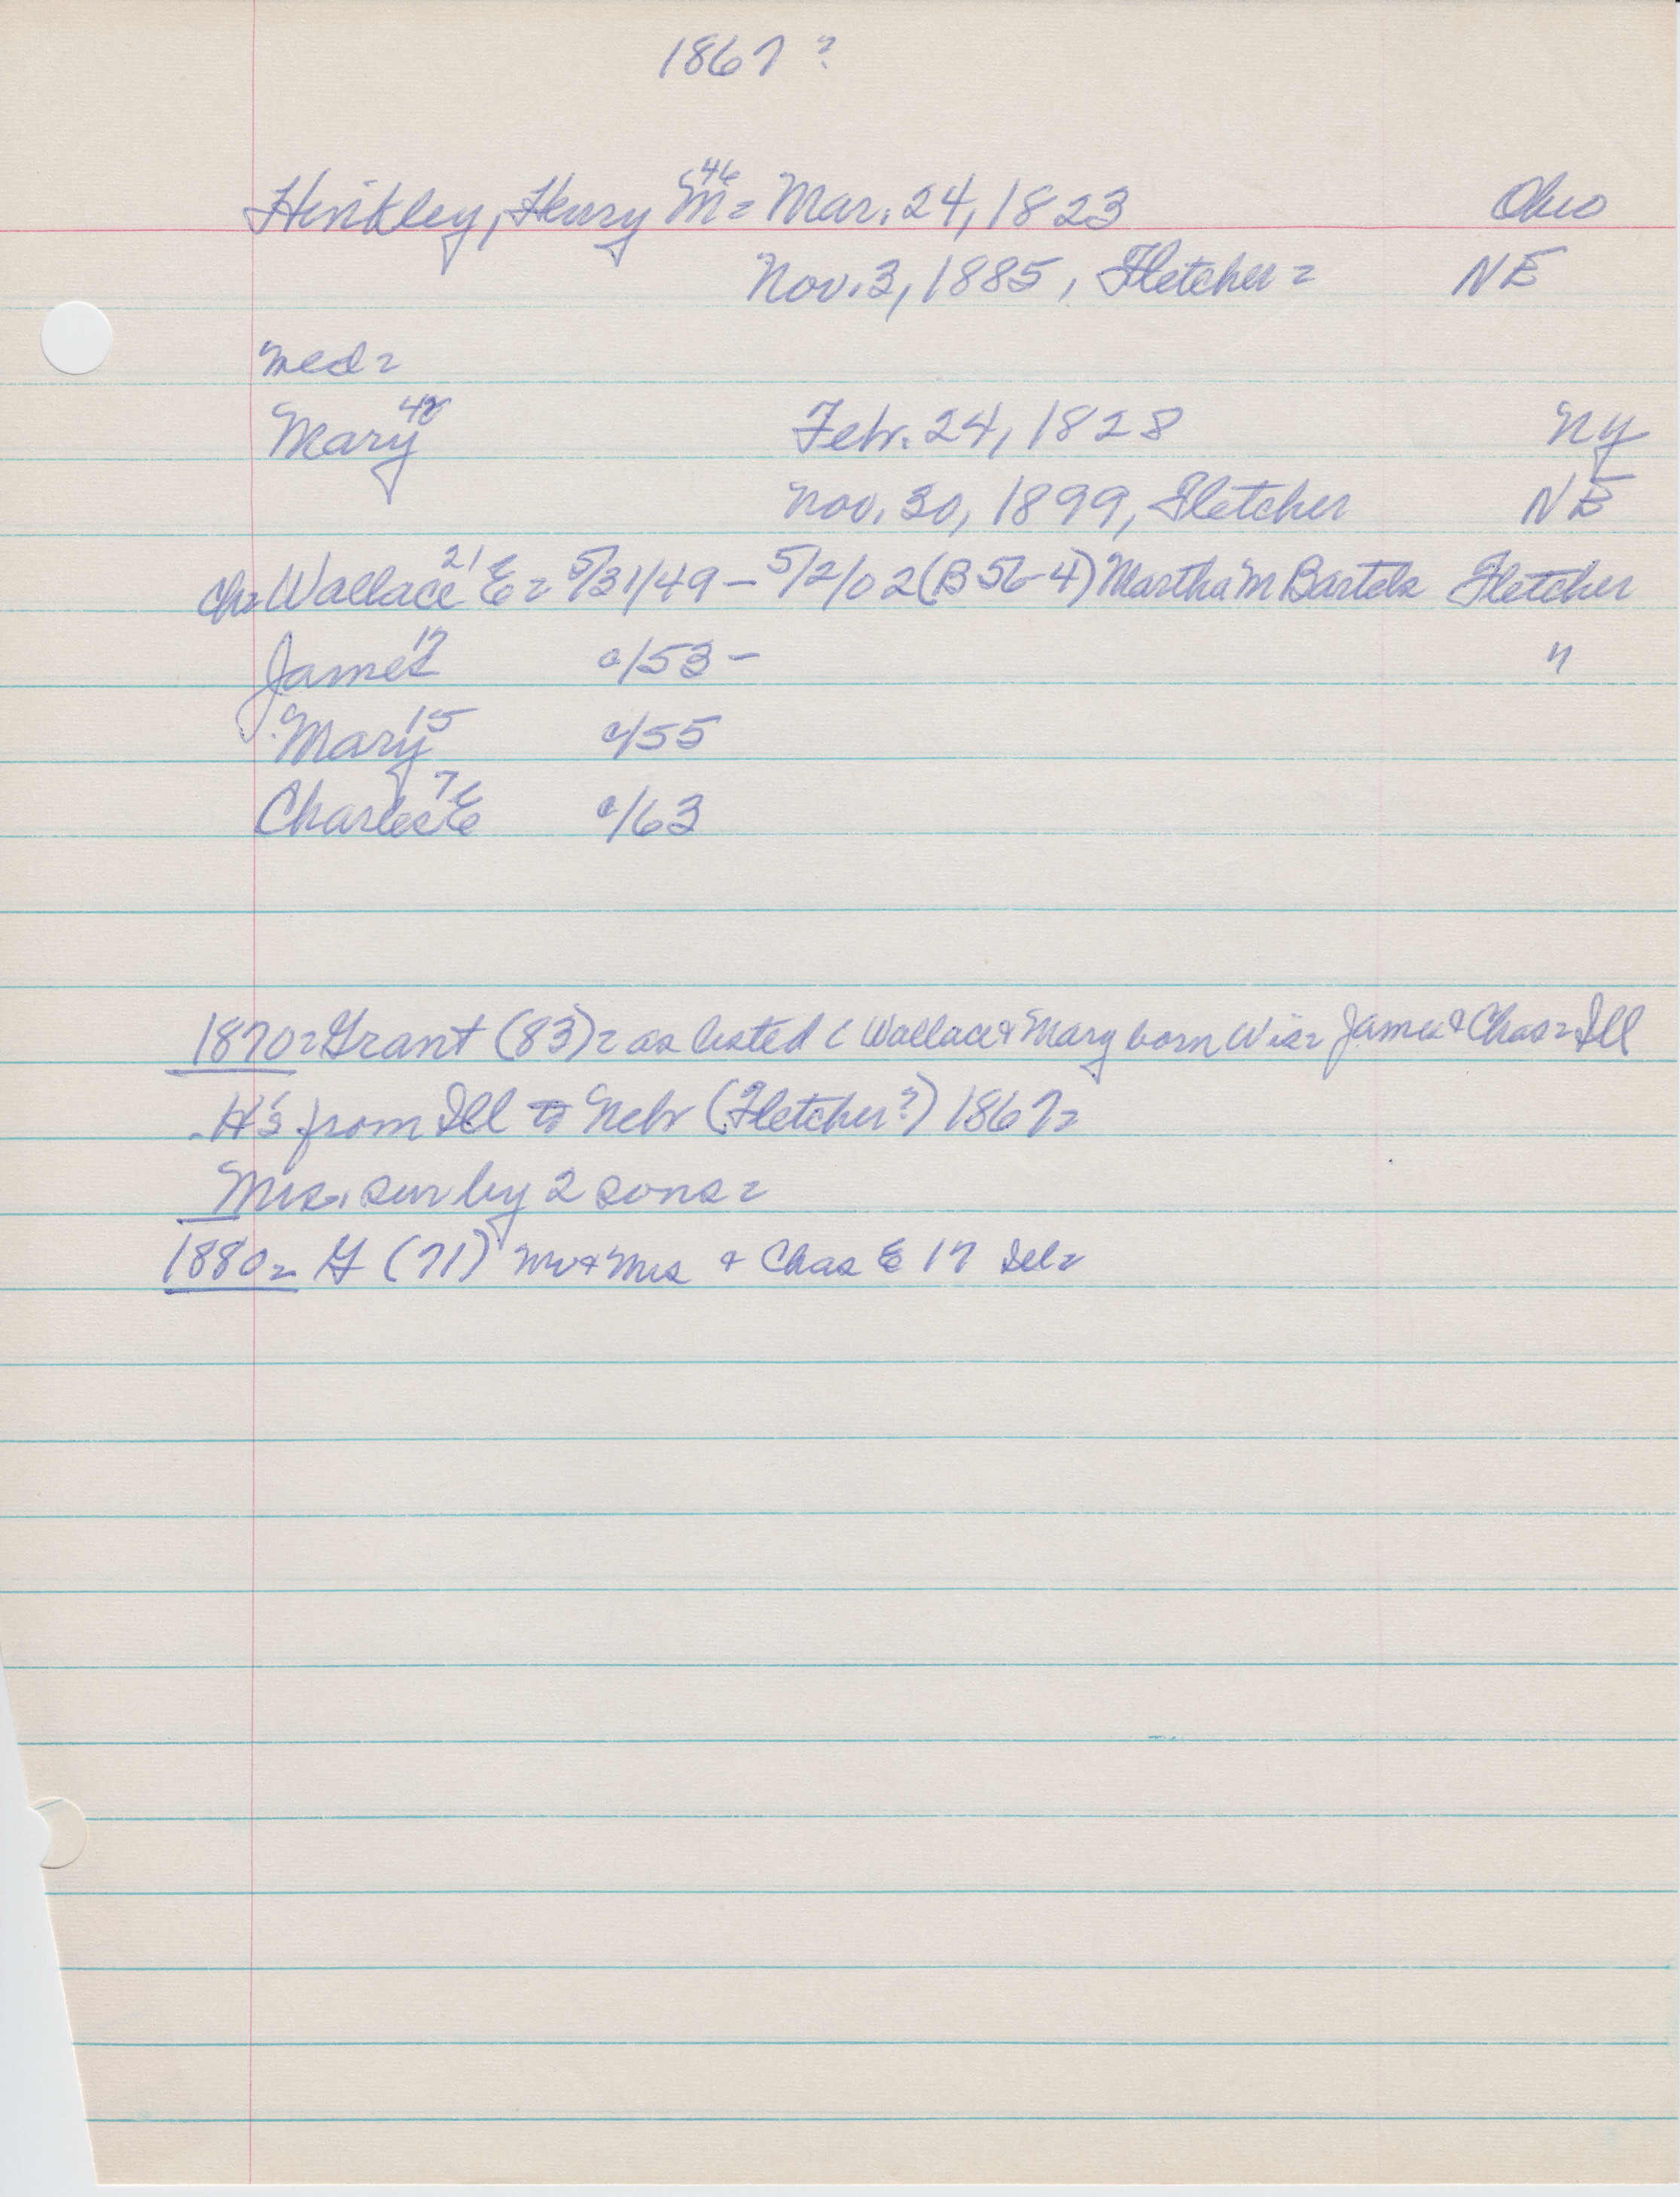 1867 ?
Hinkley, Henry M 46 = Mar. 24, 1823 Ohio
Nov. 3, 1885, Fletcher = NE
Med =
Mary 42 Febr. 24, 1828 NY
Nov. 30, 1899, Fletcher NE
Ch = Wallace 21 E = 5/31/49 – 5/2/02 (B 56-4) Martha M Bartels Fletcher
James 17 c/53 – "
Mary 15 c/55
Charles 7 E c/63
1870 = Grant (83) = as listed ( Wallace & Mary born Wis = James & Chas = Ill
H's from Ill to Nebr (Fletcher?) 1867 =
Mrs. sur by 2 sons =
1880 = G (71) Mr & Mrs & Chas E 17